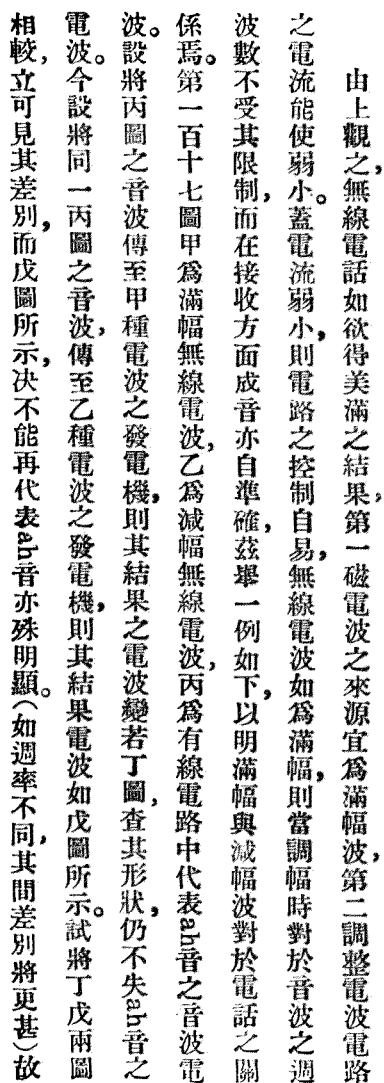 由上觀之,無線電話如欲得美滿之結果,第一磁電波之來源宜爲滿幅波,第二調整電波電路
之電流能使弱小。蓋電流弱小,則電路之控制自易,無線電波如爲滿幅,則當調幅時對於音波之週
波數不受其限制,而在接收方面成音亦自準確,茲舉一例如下,以明滿幅與減幅波對於電話之關
係焉。第一百十七圖甲爲滿幅無線電波,乙爲減幅無線電波,丙爲有線電路中代表ah音之音波電
波。設將丙圖之音波傳至甲種電波之發電機,則其結果之電波變若丁圖,查其形狀,仍不失ah音之
電波。今設將同一丙圖之音波,傳至乙種電波之發電機,則其結果電波如戊圖所示。試將丁戊兩圖
相較,立可見其差別,而戊圖所示,决不能再代表ah音亦殊明顯。(如週率不同,其間差別將更甚)故